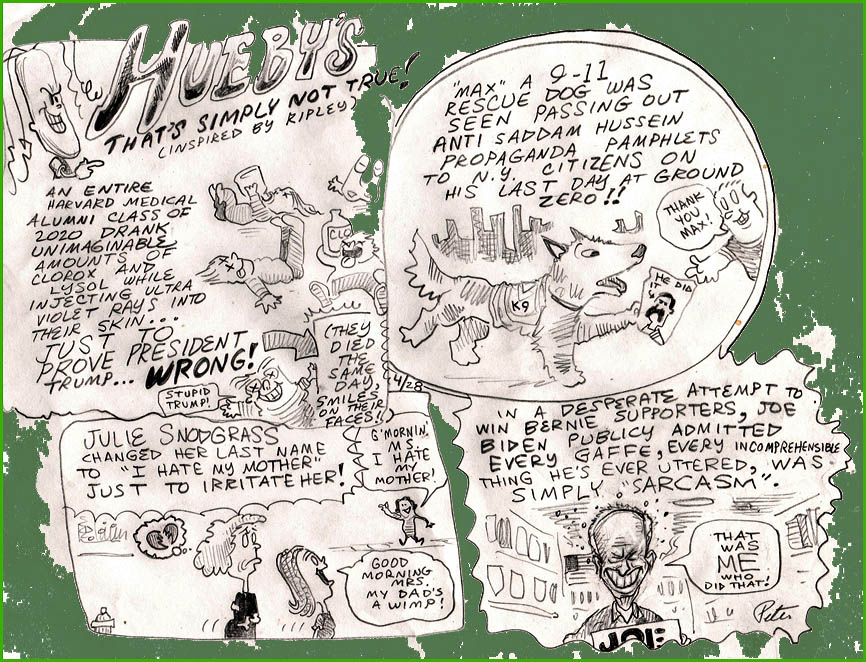 HUEBY'S
THAT'S SIMPLY NOT TRUE!
(INSPIRED BY RIPLEY)
AN ENTIRE
HARVARD MEDICAL
ALUMNI CLASS OF
2020 DRANK
UNIMAGINABLE
AMOUNTS OF
CLOROX AND
LYSOL WHILE
INJECTING ULTRA
VIOLET RAYS INTO
THEIR SKIN...
JUST TO
PROVE PRESIDENT
TRUMP... WRONG!
STUPID
TRUMP!
(THEY
DIED
THE
SAME
DAY,
SMILES
ON THEIR
FACES!!)
4/28
"MAX" A 9-11
RESCUE DOG WAS
SEEN PASSING OUT
ANTI SADDAM HUSSEIN
PROPAGANDA PAMPHLETS
TO N.Y. CITIZENS ON
HIS LAST DAY AT GROUND
ZERO!!
THANK
YOU
MAX!
K9
HE DID
IT
JULIE SNODGRASS
CHANGED HER LAST NAME
TO "I HATE MY MOTHER"
JUST TO IRRITATE HER!
G'MORNIN'.
MS.
I HATE
MY
MOTHER!
GOOD
MORNING
MRS.
MY DAD'S
A WIMP!
IN A DESPERATE ATTEMPT TO
WIN BERNIE SUPPORTERS, JOE
BIDEN PUBLICY ADMITTED
EVERY GAFFE, EVERY INCOMPREHENSIBLE
THING HE'S EVER UTTERED, WAS
SIMPLY "SARCASM".
THAT
WAS
ME
WHO
DID THAT!
JOE
Peter